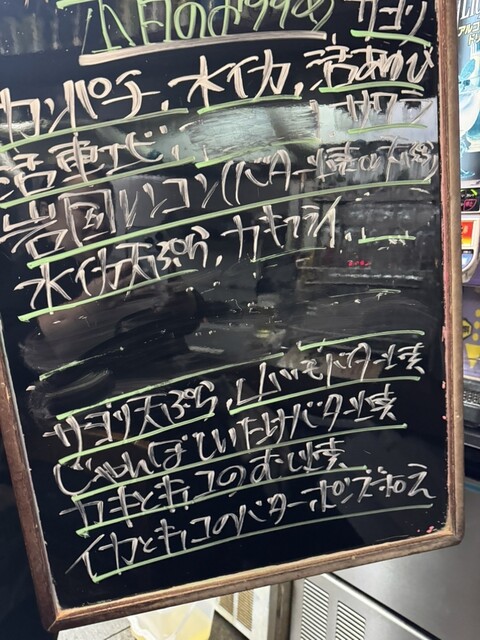 本日のおすすめ サヨリ
カンパチ、水イカ、活あわび
活車エビ、サワラ
岩国レンコン(バター焼or天ぷら)
水イカ天ぷら、カキフライ、
サヨリ天ぷら、しいたけバター焼
じゃんぼしいたけバター焼
カキとキノコのすい焼
イカとキノコのバターポンズ和え